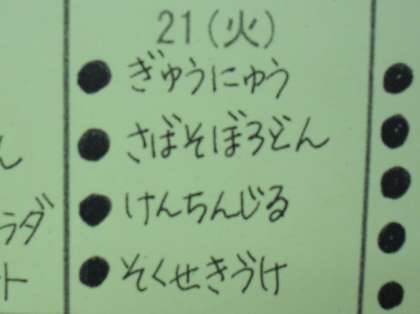 21(火)
● ぎゅうにゅう
● さばそぼろどん
● けんちんじる
● そくせきづけ
ん
ラダ
ト